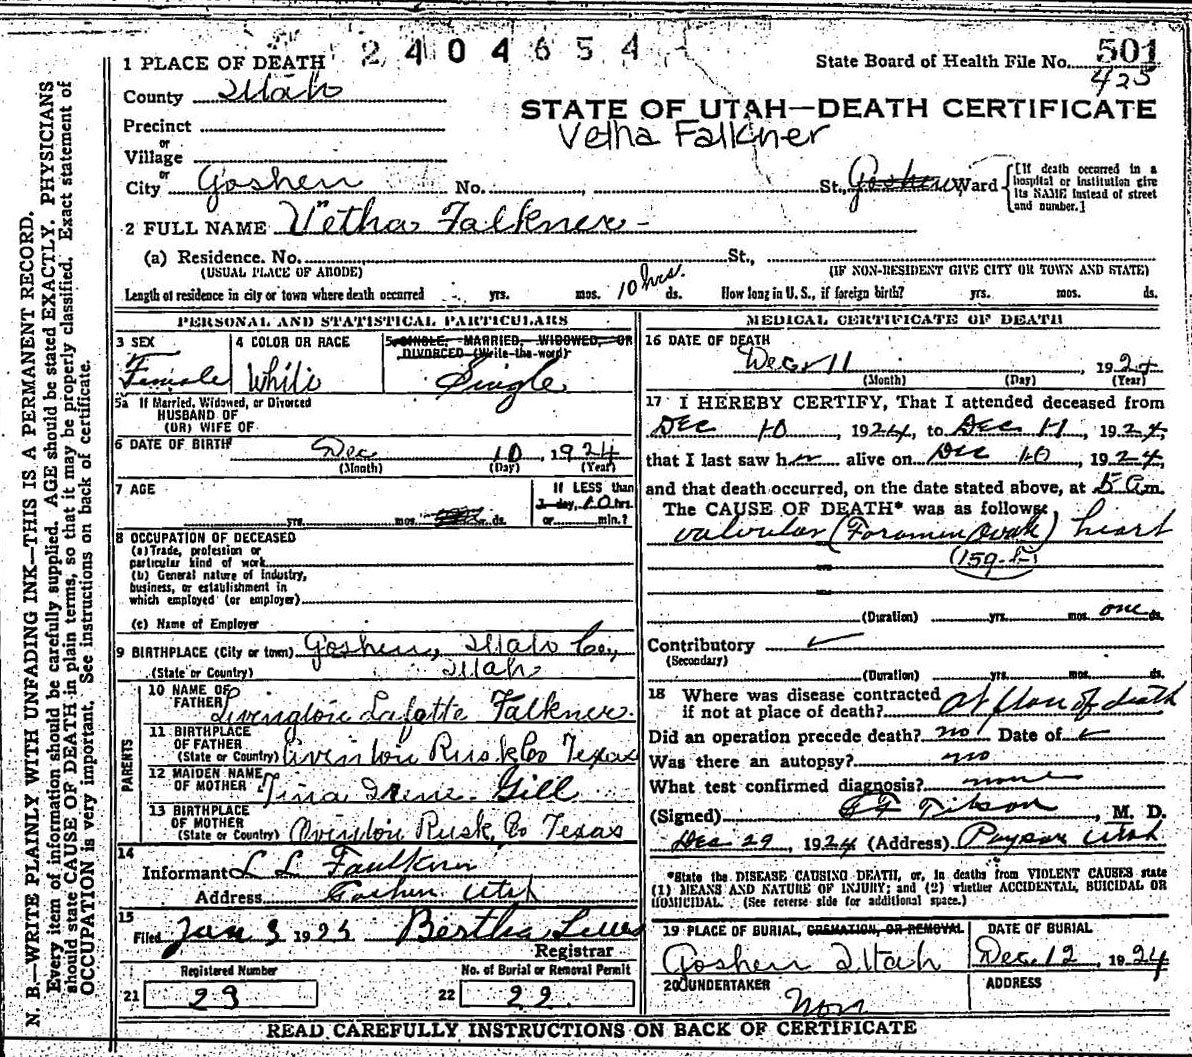 2404654
State Board of Health File No. 501
425
1 PLACE OF DEATH
County Utah
STATE OF UTAH—DEATH CERTIFICATE
Precinct
Velha Falkner
or
Village
or
City Goshen No. , St., Goshen Ward [If death occurred in a hospital or institution give its NAME instead of street and number.]
2 FULL NAME Vetha Falkner
(a) Residence. No. St.,
(USUAL PLACE OF ABODE) (IF NON-RESIDENT GIVE CITY OR TOWN AND STATE)
Length of residence in city or town where death occurred yrs. mos. 10 hrs. ds. How long in U. S., if foreign birth? yrs. mos. ds.
PERSONAL AND STATISTICAL PARTICULARS
3 SEX 4 COLOR OR RACE 5 SINGLE, MARRIED, WIDOWED, OR
DIVORCED (Write the word)
Female White Single
5a If Married, Widowed, or Divorced
HUSBAND OF
(OR) WIFE OF
6 DATE OF BIRTH Dec 10, 1924
(Month) (Day) (Year)
7 AGE If LESS than
yrs. mos. ds. 1 day, 10 hrs.
or min.?
8 OCCUPATION OF DECEASED
(a) Trade, profession or
particular kind of work
(b) General nature of industry,
business, or establishment in
which employed (or employer)
(c) Name of Employer
9 BIRTHPLACE (City or town) Goshen, Utah Co,
(State or Country) Utah
PARENTS
10 NAME OF
FATHER Lafatte Falkner
11 BIRTHPLACE
OF FATHER
(State or Country) Rusk Co Texas
12 MAIDEN NAME
OF MOTHER Tina Irene Gill
13 BIRTHPLACE
OF MOTHER
(State or Country) Rusk, Co Texas
14
Informant L L Faulkner
Address Goshen Utah
15
Filed Jan 3 1925 Bertha
Registrar
Registered Number No. of Burial or Removal Permit
21 29 22 29
MEDICAL CERTIFICATE OF DEATH
16 DATE OF DEATH
Dec 11, 1924
(Month) (Day) (Year)
17 I HEREBY CERTIFY, That I attended deceased from
Dec 10, 1924, to Dec 11, 1924,
that I last saw her alive on Dec 10, 1924,
and that death occurred, on the date stated above, at 5 a.m.
The CAUSE OF DEATH* was as follows:
valvular (Foramen Ovale) heart
(159-
(Duration) yrs. mos. one ds.
Contributory
(Secondary)
(Duration) yrs. mos. ds.
18 Where was disease contracted
if not at place of death? at place of death
Did an operation precede death? no Date of
Was there an autopsy? no
What test confirmed diagnosis? none
(Signed) , M. D.
Dec 29, 1924 (Address) Payson Utah
*State the DISEASE CAUSING DEATH, or, in deaths from VIOLENT CAUSES state
(1) MEANS AND NATURE OF INJURY; and (2) whether ACCIDENTAL, SUICIDAL OR
HOMICIDAL. (See reverse side for additional space.)
19 PLACE OF BURIAL, CREMATION, OR REMOVAL DATE OF BURIAL
Goshen Utah Dec. 12, 1924
20 UNDERTAKER ADDRESS
Non
READ CAREFULLY INSTRUCTIONS ON BACK OF CERTIFICATE
N. B.—WRITE PLAINLY WITH UNFADING INK—THIS IS A PERMANENT RECORD.
Every item of information should be carefully supplied. AGE should be stated EXACTLY. PHYSICIANS
should state CAUSE OF DEATH in plain terms, so that it may be properly classified. Exact statement of
OCCUPATION is very important. See instructions on back of certificate.